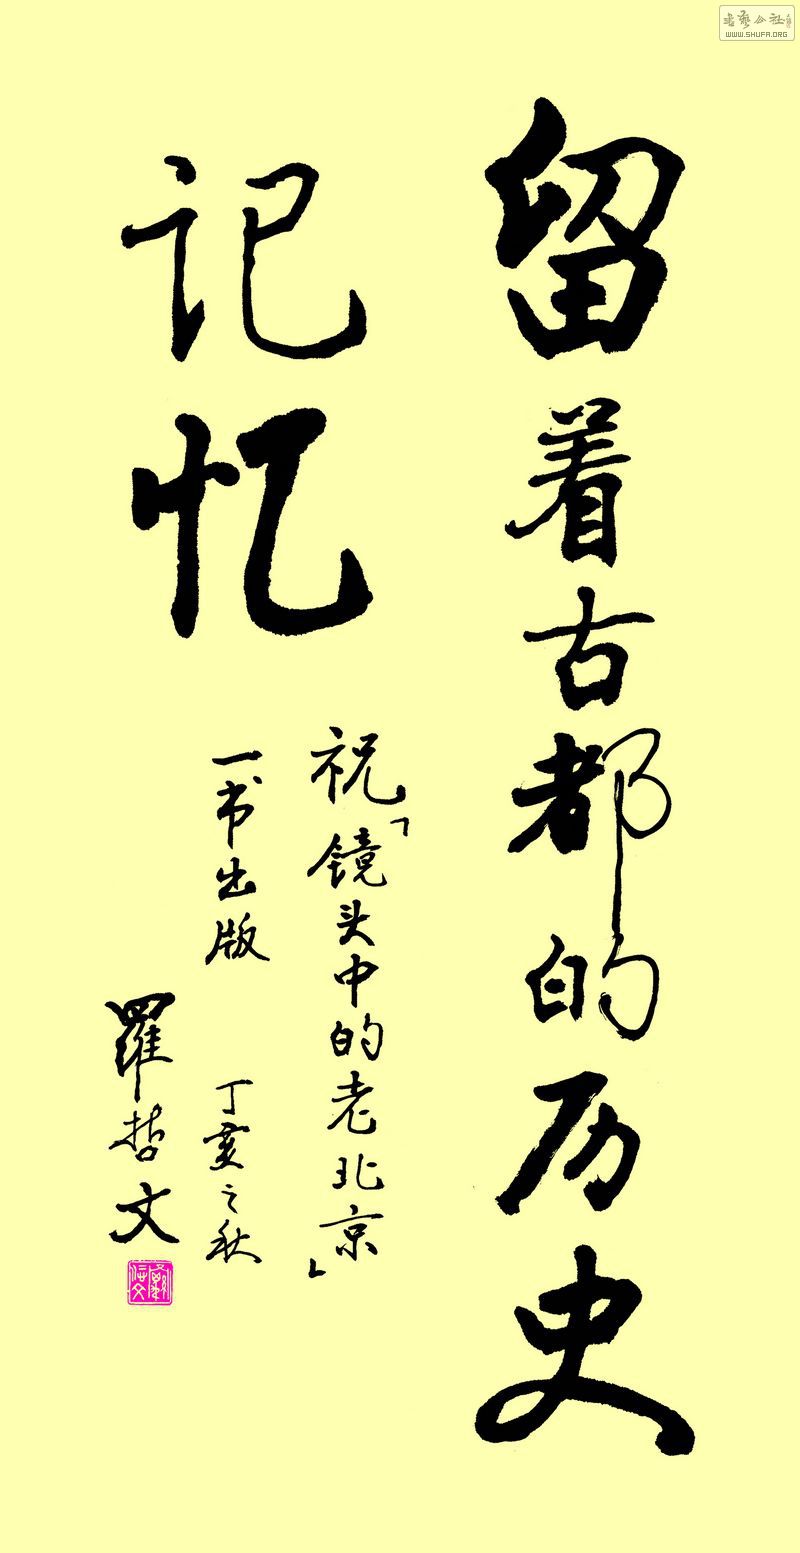 留着古都的历史
记忆
祝「镜头中的老北京」
一书出版
丁亥之秋
羅哲文
书艺公社
WWW.SHUFA.ORG